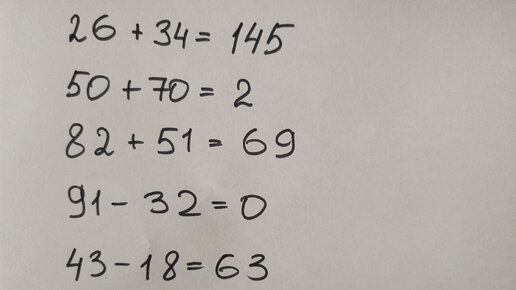 26 + 34 = 145
50 + 70 = 2
82 + 51 = 69
91 - 32 = 0
43 - 18 = 63